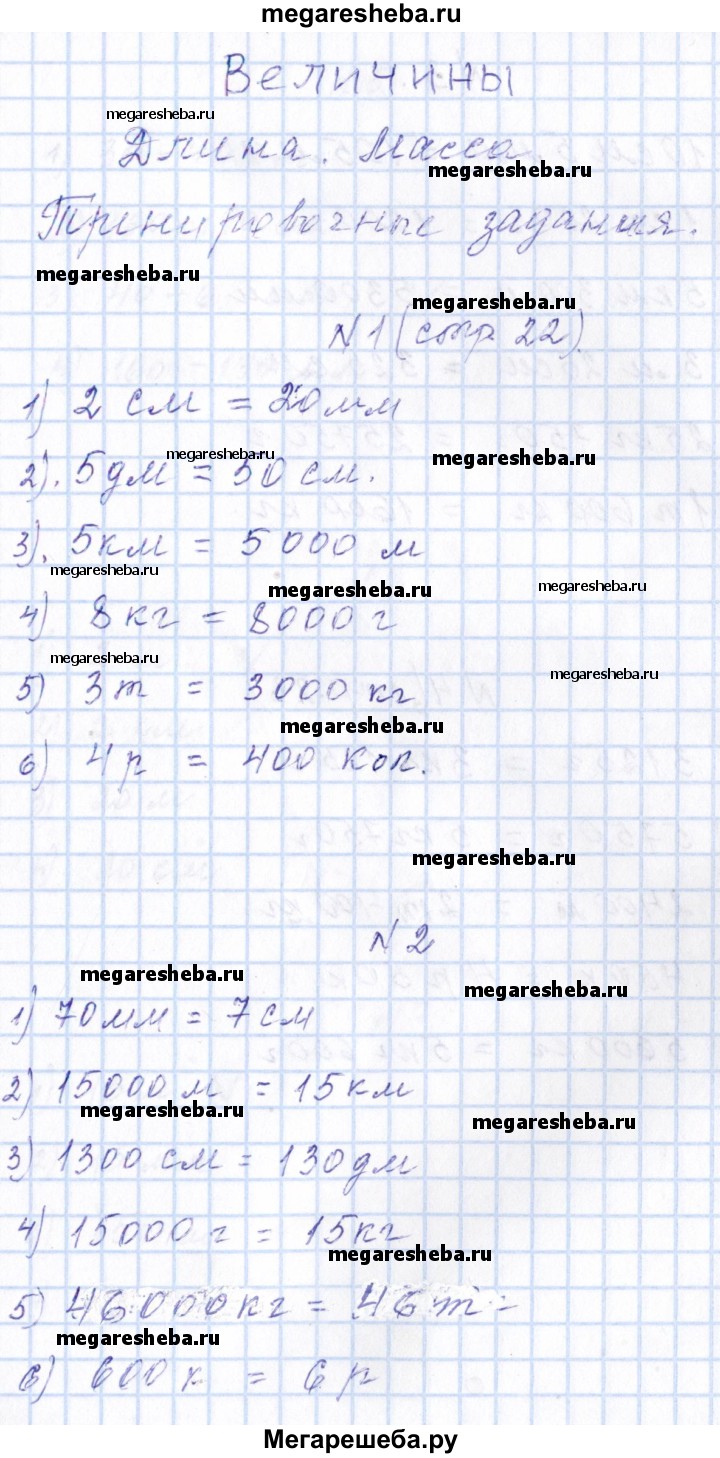 megaresheba.ru
Величины
megaresheba.ru
Длина. Масса
megaresheba.ru
Тренировочные задания.
megaresheba.ru
megaresheba.ru
N 1 (стр 22).
1) 2 см = 20 мм
megaresheba.ru
megaresheba.ru
2). 5 дм = 50 см.
3). 5 км = 5000 м
megaresheba.ru
megaresheba.ru
megaresheba.ru
4) 8 кг = 8000 г
megaresheba.ru
megaresheba.ru
5) 3 т = 3000 кг
megaresheba.ru
6) 4 р = 400 коп.
megaresheba.ru
N 2
megaresheba.ru
megaresheba.ru
1) 70 мм = 7 см
2) 15000 м = 15 км
megaresheba.ru
megaresheba.ru
3) 1300 см = 130 дм
4) 15000 г = 15 кг
megaresheba.ru
5) 46000 кг = 46 т =
megaresheba.ru
6) 600 к = 6 р
Мегарешеба.ру